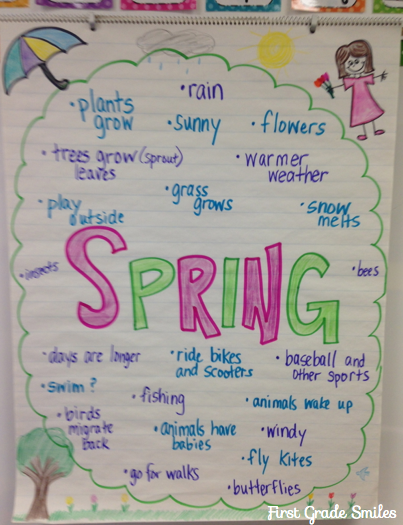 • rain
• plants
grow
• sunny
• flowers
• trees grow (sprout)
leaves
• warmer
weather
• grass
grows
• play
outside
• snow
melts
SPRING
• insects
• bees
• days are longer
• ride bikes
and scooters
• baseball and
other sports
• swim?
• fishing
• animals wake up
• birds
migrate
back
• animals have
babies
• windy
• go for walks
• fly kites
• butterflies
First Grade Smiles